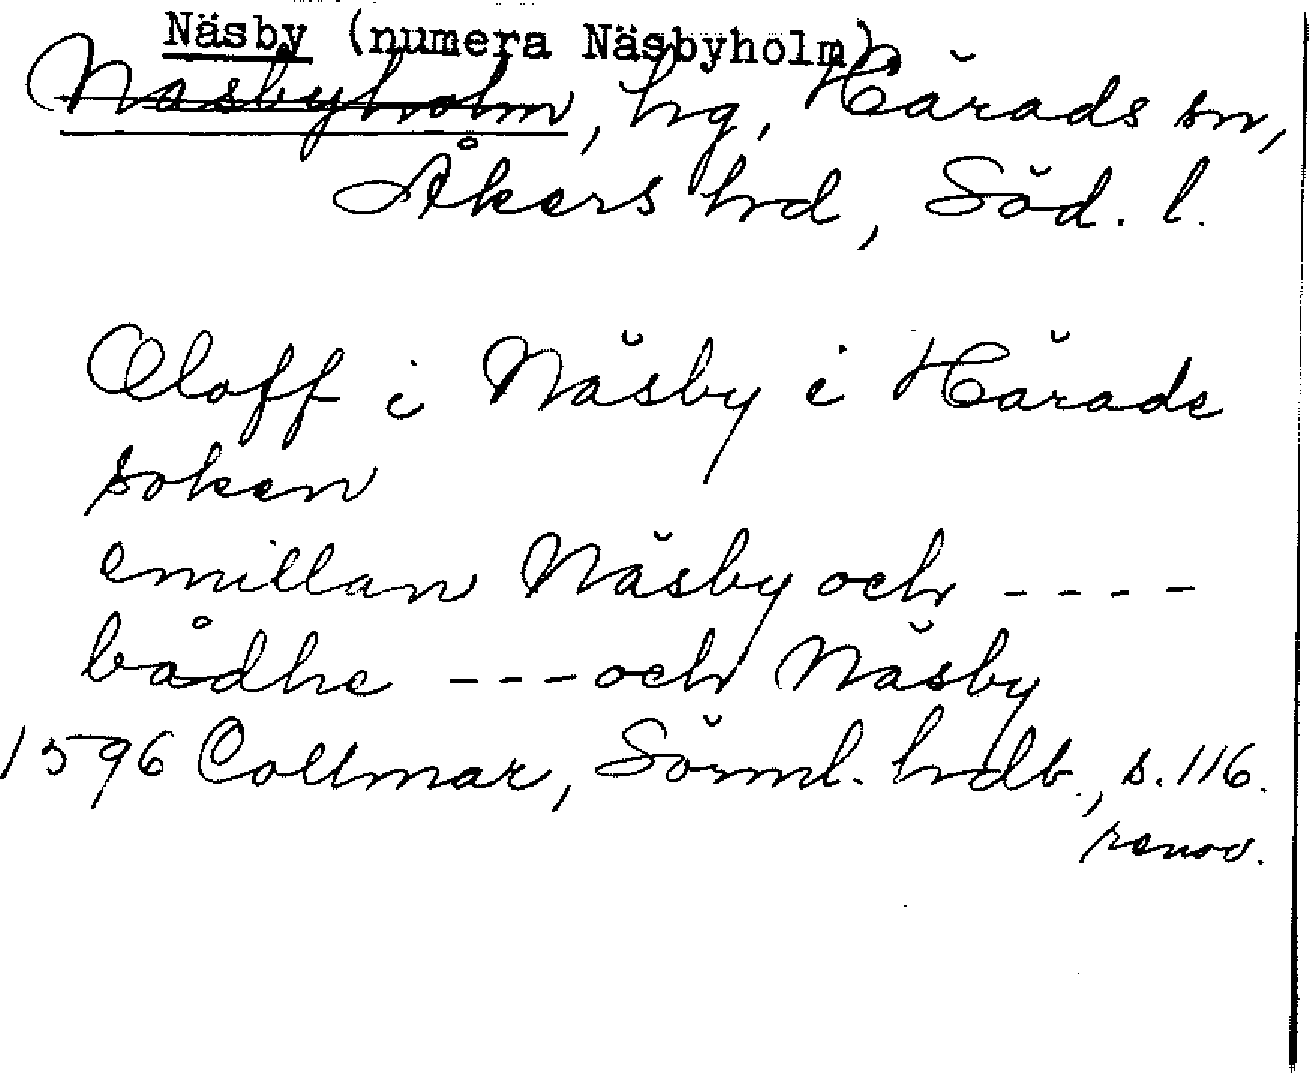 Näsby (numera Näsbyholm)
Näsbyholm, hg, Härads sn,
Åkers hd, Söd. l.
Oloff i Näsby i Härade
soken
emillan Näsby och ----
bådhe --- och Näsby
1596 Collmar, Sörml. hdlb., s. 116.
renov.